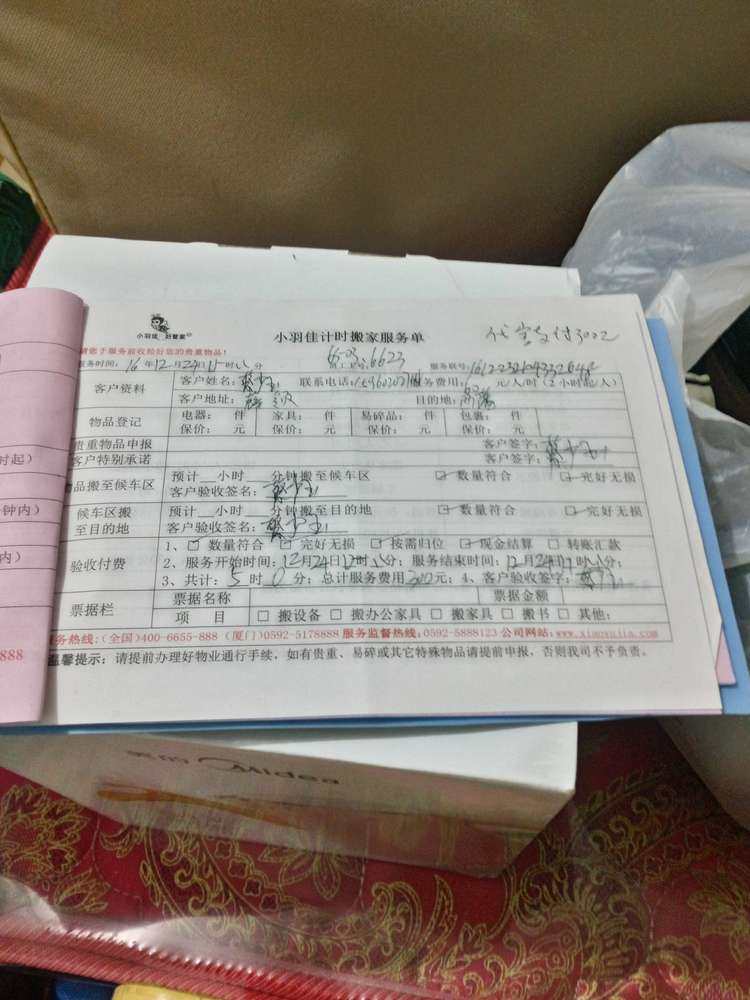 小羽佳 好管家
小羽佳计时搬家服务单
请您于服务前收拾好您的贵重物品!
服务时间: 16 年 12 月 24 日 时 分 员工工号: 服务联号:
客户资料 客户姓名: 联系电话: 服务费用: 元/人/时(2小时起/人)
客户地址: 目的地:
物品登记 电器: 件 家具: 件 易碎品: 件 包裹: 件
保价: 元 保价: 元 保价: 元 保价: 元
贵重物品申报 客户签字:
客户特别承诺 客户签字:
物品搬至候车区 预计__小时__分钟搬至候车区 ☑ 数量符合 ☑ 完好无损
客户验收签名:
候车区搬至目的地 预计__小时__分钟搬至目的地 ☑ 数量符合 ☑ 完好无损
客户验收签名:
验收付费 1、☑ 数量符合 ☑ 完好无损 ☑ 按需归位 ☑ 现金结算 □ 转账汇款
2、服务开始时间: 12 月 24 日 12 时 分; 服务结束时间: 12 月 24 日 17 时 分;
3、共计: 5 时 0 分; 总计服务费用 300 元; 4、客户验收签字:
票据栏 票据名称 票据金额
项 目 □ 搬设备 □ 搬办公家具 □ 搬家具 □ 搬书 □ 其他:
服务热线:(全国)400-6655-888 (厦门)0592-5178888 服务监督热线:0592-5888123 公司网站:www.xiaoyujia.com
温馨提示: 请提前办理好物业通行手续, 如有贵重、易碎或其它特殊物品请提前申报, 否则我司不予负责。
时起)
钟内)
内)
888
美的 Midea